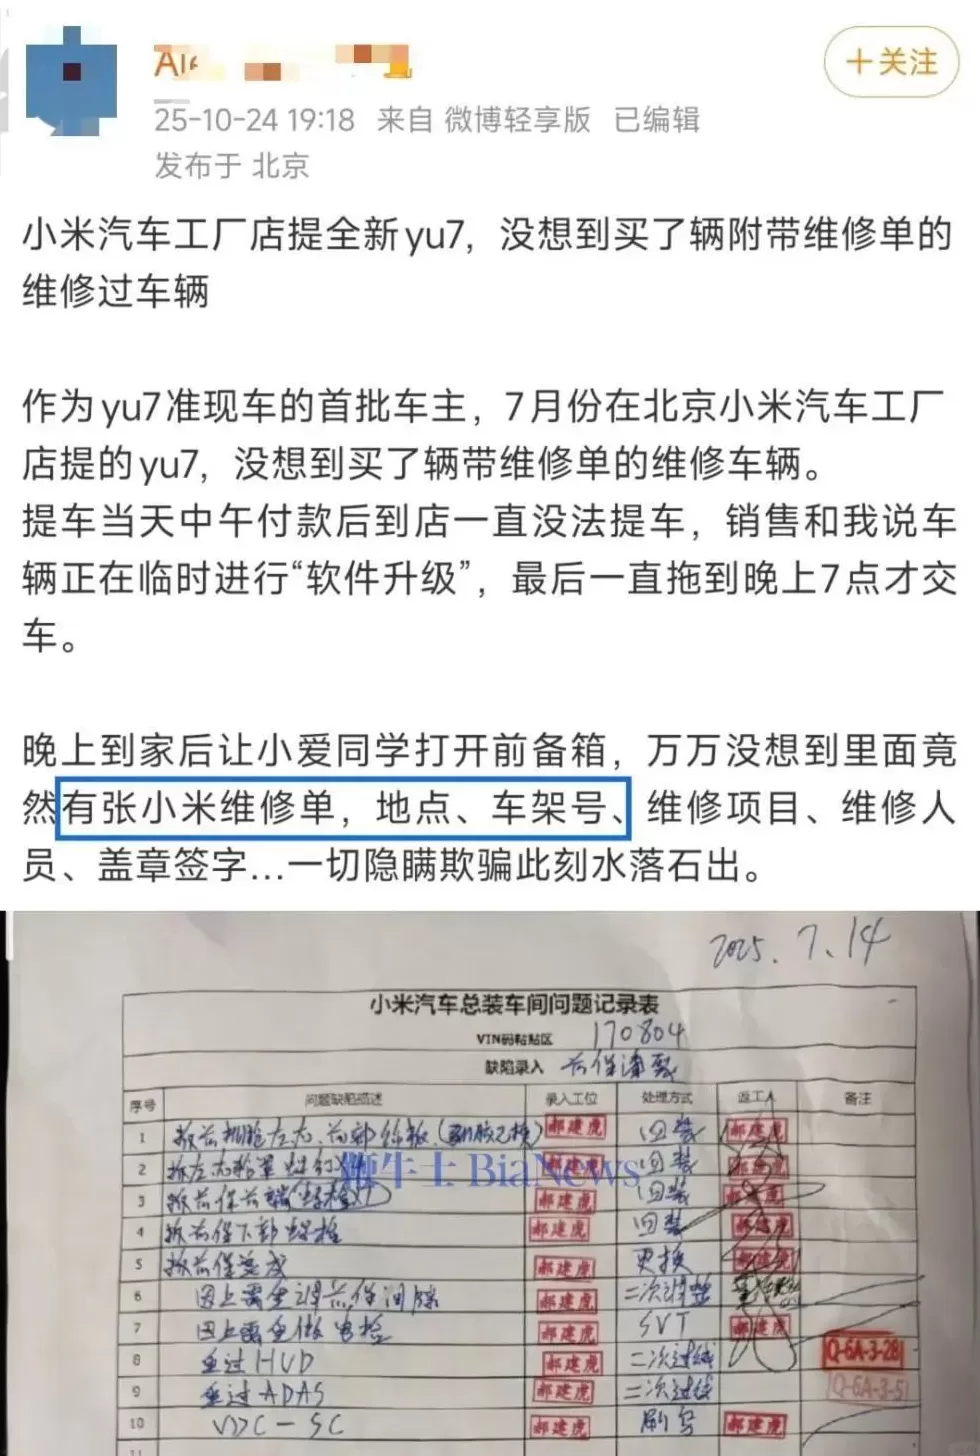 +关注
25-10-24 19:18 来自 微博轻享版 已编辑
发布于 北京
小米汽车工厂店提全新yu7，没想到买了辆附带维修单的
维修过车辆
作为yu7准现车的首批车主，7月份在北京小米汽车工厂
店提的yu7，没想到买了辆带维修单的维修车辆。
提车当天中午付款后到店一直没法提车，销售和我说车
辆正在临时进行“软件升级”，最后一直拖到晚上7点才交
车。
晚上到家后让小爱同学打开前备箱，万万没想到里面竟
然有张小米维修单，地点、车架号、维修项目、维修人
员、盖章签字...一切隐瞒欺骗此刻水落石出。
2025.7.14
小米汽车总装车间问题记录表
VIN码粘贴区 170804
缺陷录入 前保漆裂
序号 问题缺陷描述 录入工位 处理方式 返工人 备注
1 郝建虎 回装 郝建虎
2 郝建虎 回装 郝建虎
3 郝建虎 回装 郝建虎
4 拆前保下部螺栓 郝建虎 回装 郝建虎
5 拆前保总成 郝建虎 更换 郝建虎
6 因上需重调前保间隙 郝建虎 二次调整
7 因上需重做电检 郝建虎 SVT 郝建虎
8 重过HUD 郝建虎 二次过线 Q-6A-3-28
9 重过ADAS 郝建虎 二次过线 Q-6A-3-5
10 VDC-SC 郝建虎 刷写 郝建虎
11
鞭牛士 BiaNews